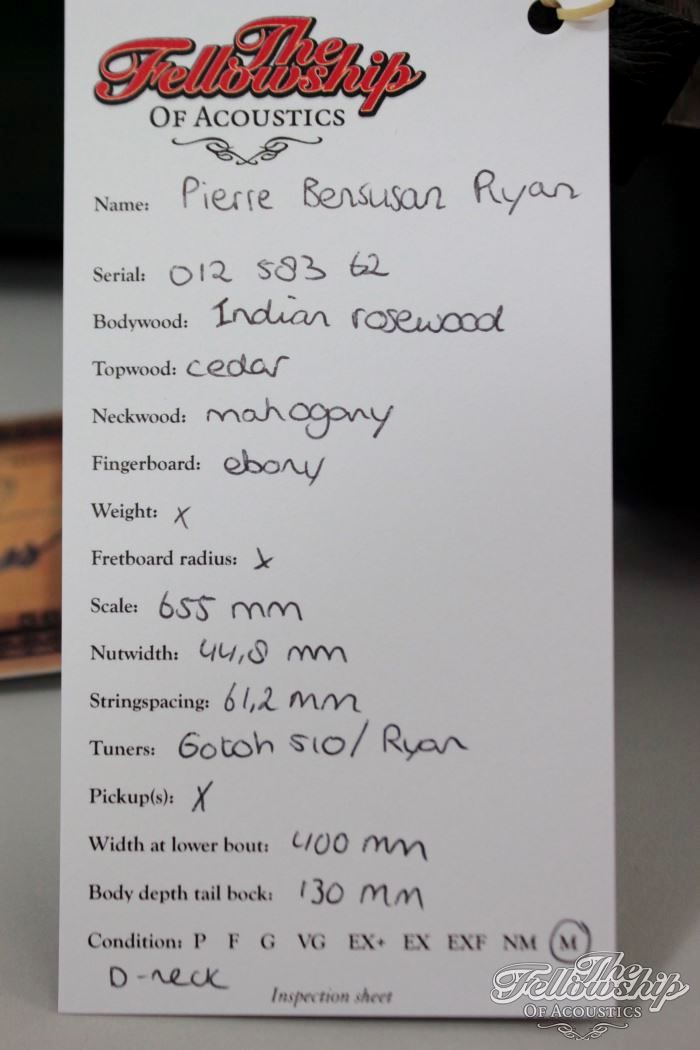 The
Fellowship
OF ACOUSTICS
Name: Pierre Bensusan Ryan
Serial: 012 583 62
Bodywood: Indian rosewood
Topwood: cedar
Neckwood: mahogany
Fingerboard: ebony
Weight: X
Fretboard radius: X
Scale: 655 mm
Nutwidth: 44,8 mm
Stringspacing: 61,2 mm
Tuners: Gotoh 510/ Ryan
Pickup(s): X
Width at lower bout: 400 mm
Body depth tail bock: 130 mm
Condition: P F G VG EX+ EX EXF NM M
D-neck
Inspection sheet
The
Fellowship
OF ACOUSTICS